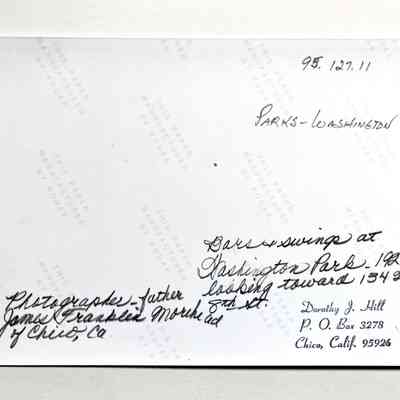 95.127.11
PARKS-WASHINGTON
Bars & swings at
Washington Park - 192
looking toward 1342
8th st.
Photographer - father
James Franklin Morehead
of Chico, Ca
Dorothy J. Hill
P. O. Box 3278
Chico, Calif. 95926